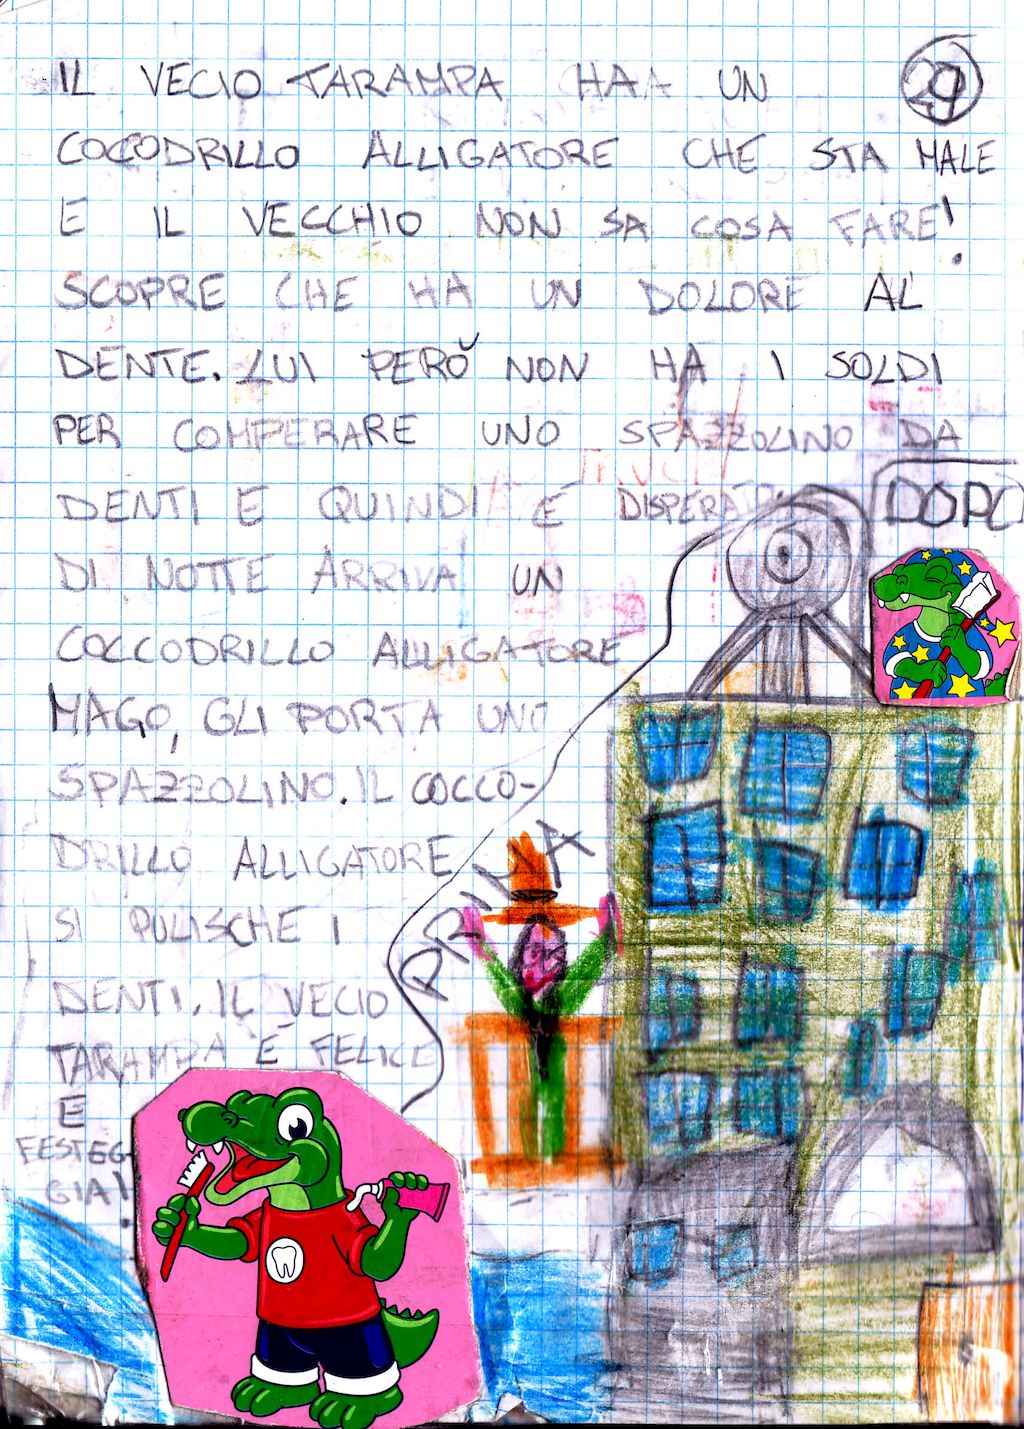 IL VECIO TARAMPA HAA UN
29
COCODRILLO ALLIGATORE CHE STA MALE
E IL VECCHIO NON SA COSA FARE!
SCOPRE CHE HA UN DOLORE AL
DENTE. LUI PERÒ NON HA I SOLDI
PER COMPERARE UNO SPAZZOLINO DA
DENTI E QUINDI É
DOPO
DI NOTTE ARRIVA UN
COCCODRILLO ALLIGATORE
MAGO, GLI PORTA UNO
SPAZZOLINO. IL COCCO-
DRILLO ALLIGATORE
SI PULISCHE I
DENTI. IL VECIO
TARAMPA É FELICE
E
FESTEG-
GIA!
PRIMA